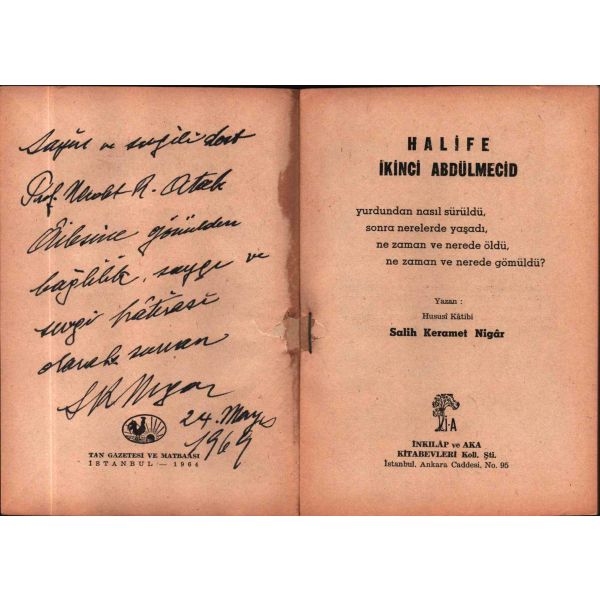 Sayın ve sevgili dost
Prof. Nevzat R. Atak
Ailesine gönülden
bağlılık, saygı ve
sevgi hâtırası
olarak sunan
SKNigar
24. Mayıs
1964
TAN GAZETESİ VE MATBAASI
İSTANBUL — 1964
HALİFE
İKİNCİ ABDÜLMECİD
yurdundan nasıl sürüldü,
sonra nerelerde yaşadı,
ne zaman ve nerede öldü,
ne zaman ve nerede gömüldü?
Yazan :
Hususî Kâtibi
Salih Keramet Nigâr
İ-A
İNKILÂP ve AKA
KİTABEVLERİ Koll. Şti.
İstanbul, Ankara Caddesi, No. 95